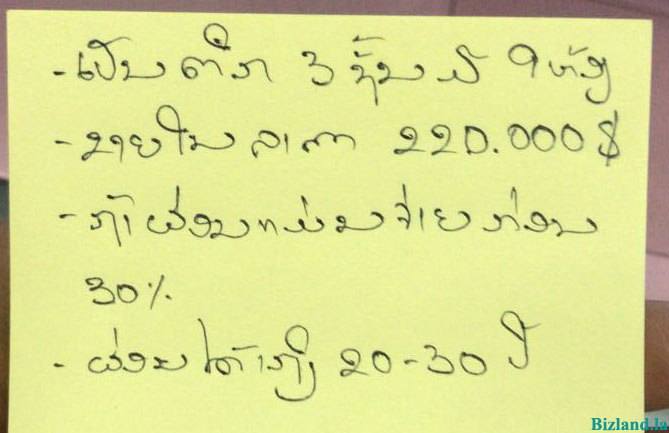 - ເປັນຕຶກ 3 ຊັ້ນ ມີ 9 ຫ້ອງ
- ຂາຍໃນລາຄາ 220.000$
- ຖ້າຜ່ອນແມ່ນຈ່າຍກ່ອນ
30%
- ຜ່ອນໄດ້ເຖິງ 20-30 ປີ
Bizland.la